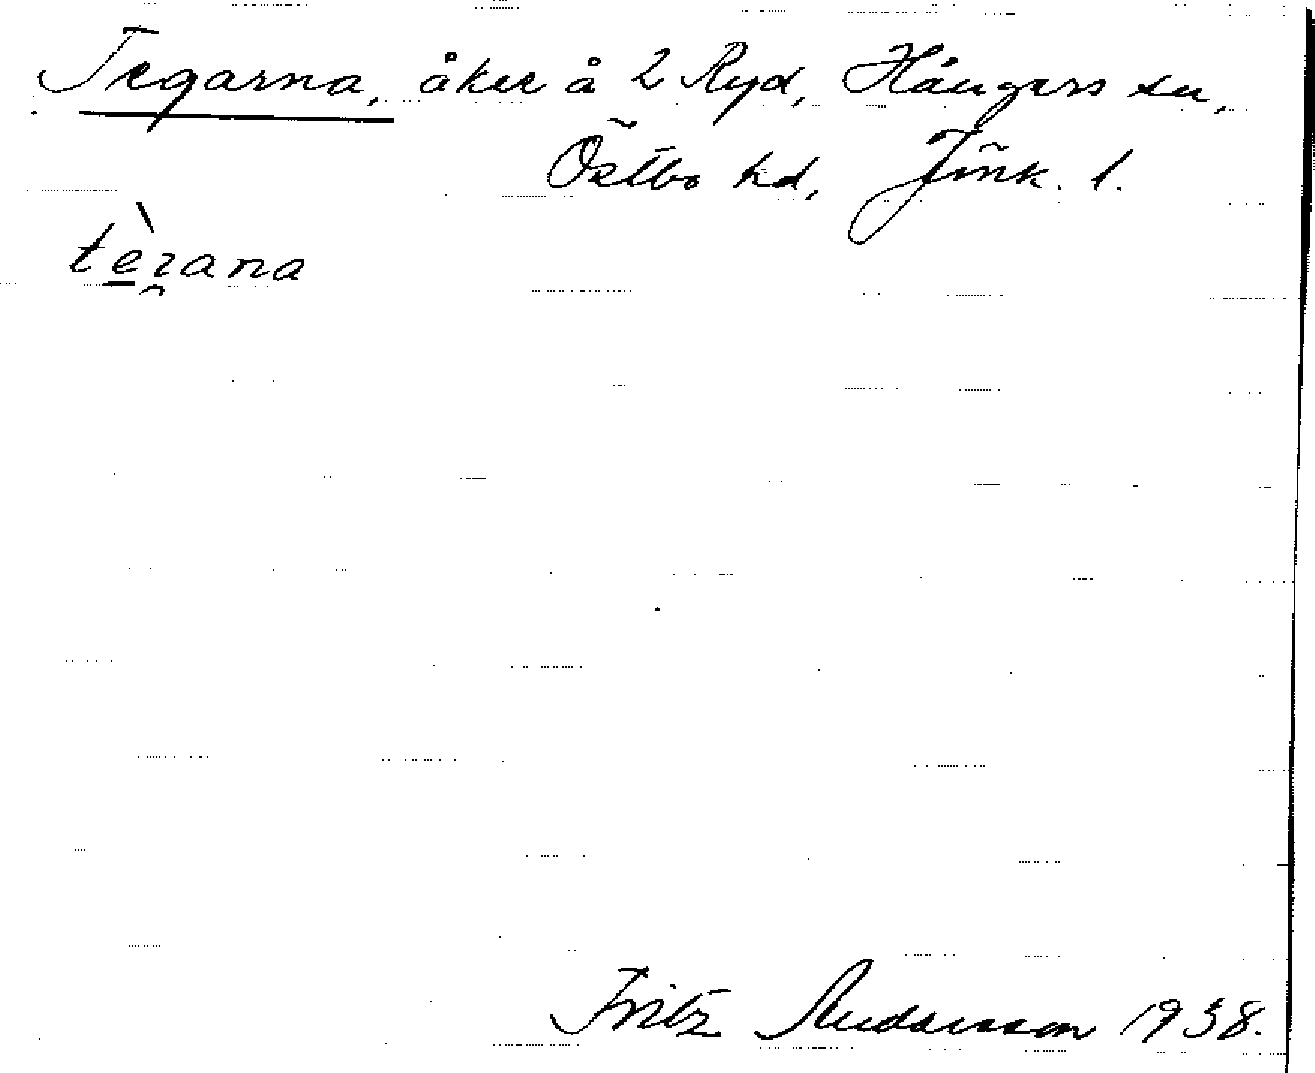 Tegarna, åker å 2 Ryd, Hångers sn,
Östbo hd, Jönk. l.
tè̱ɀ̯ana
Fritz Andersson 1938.